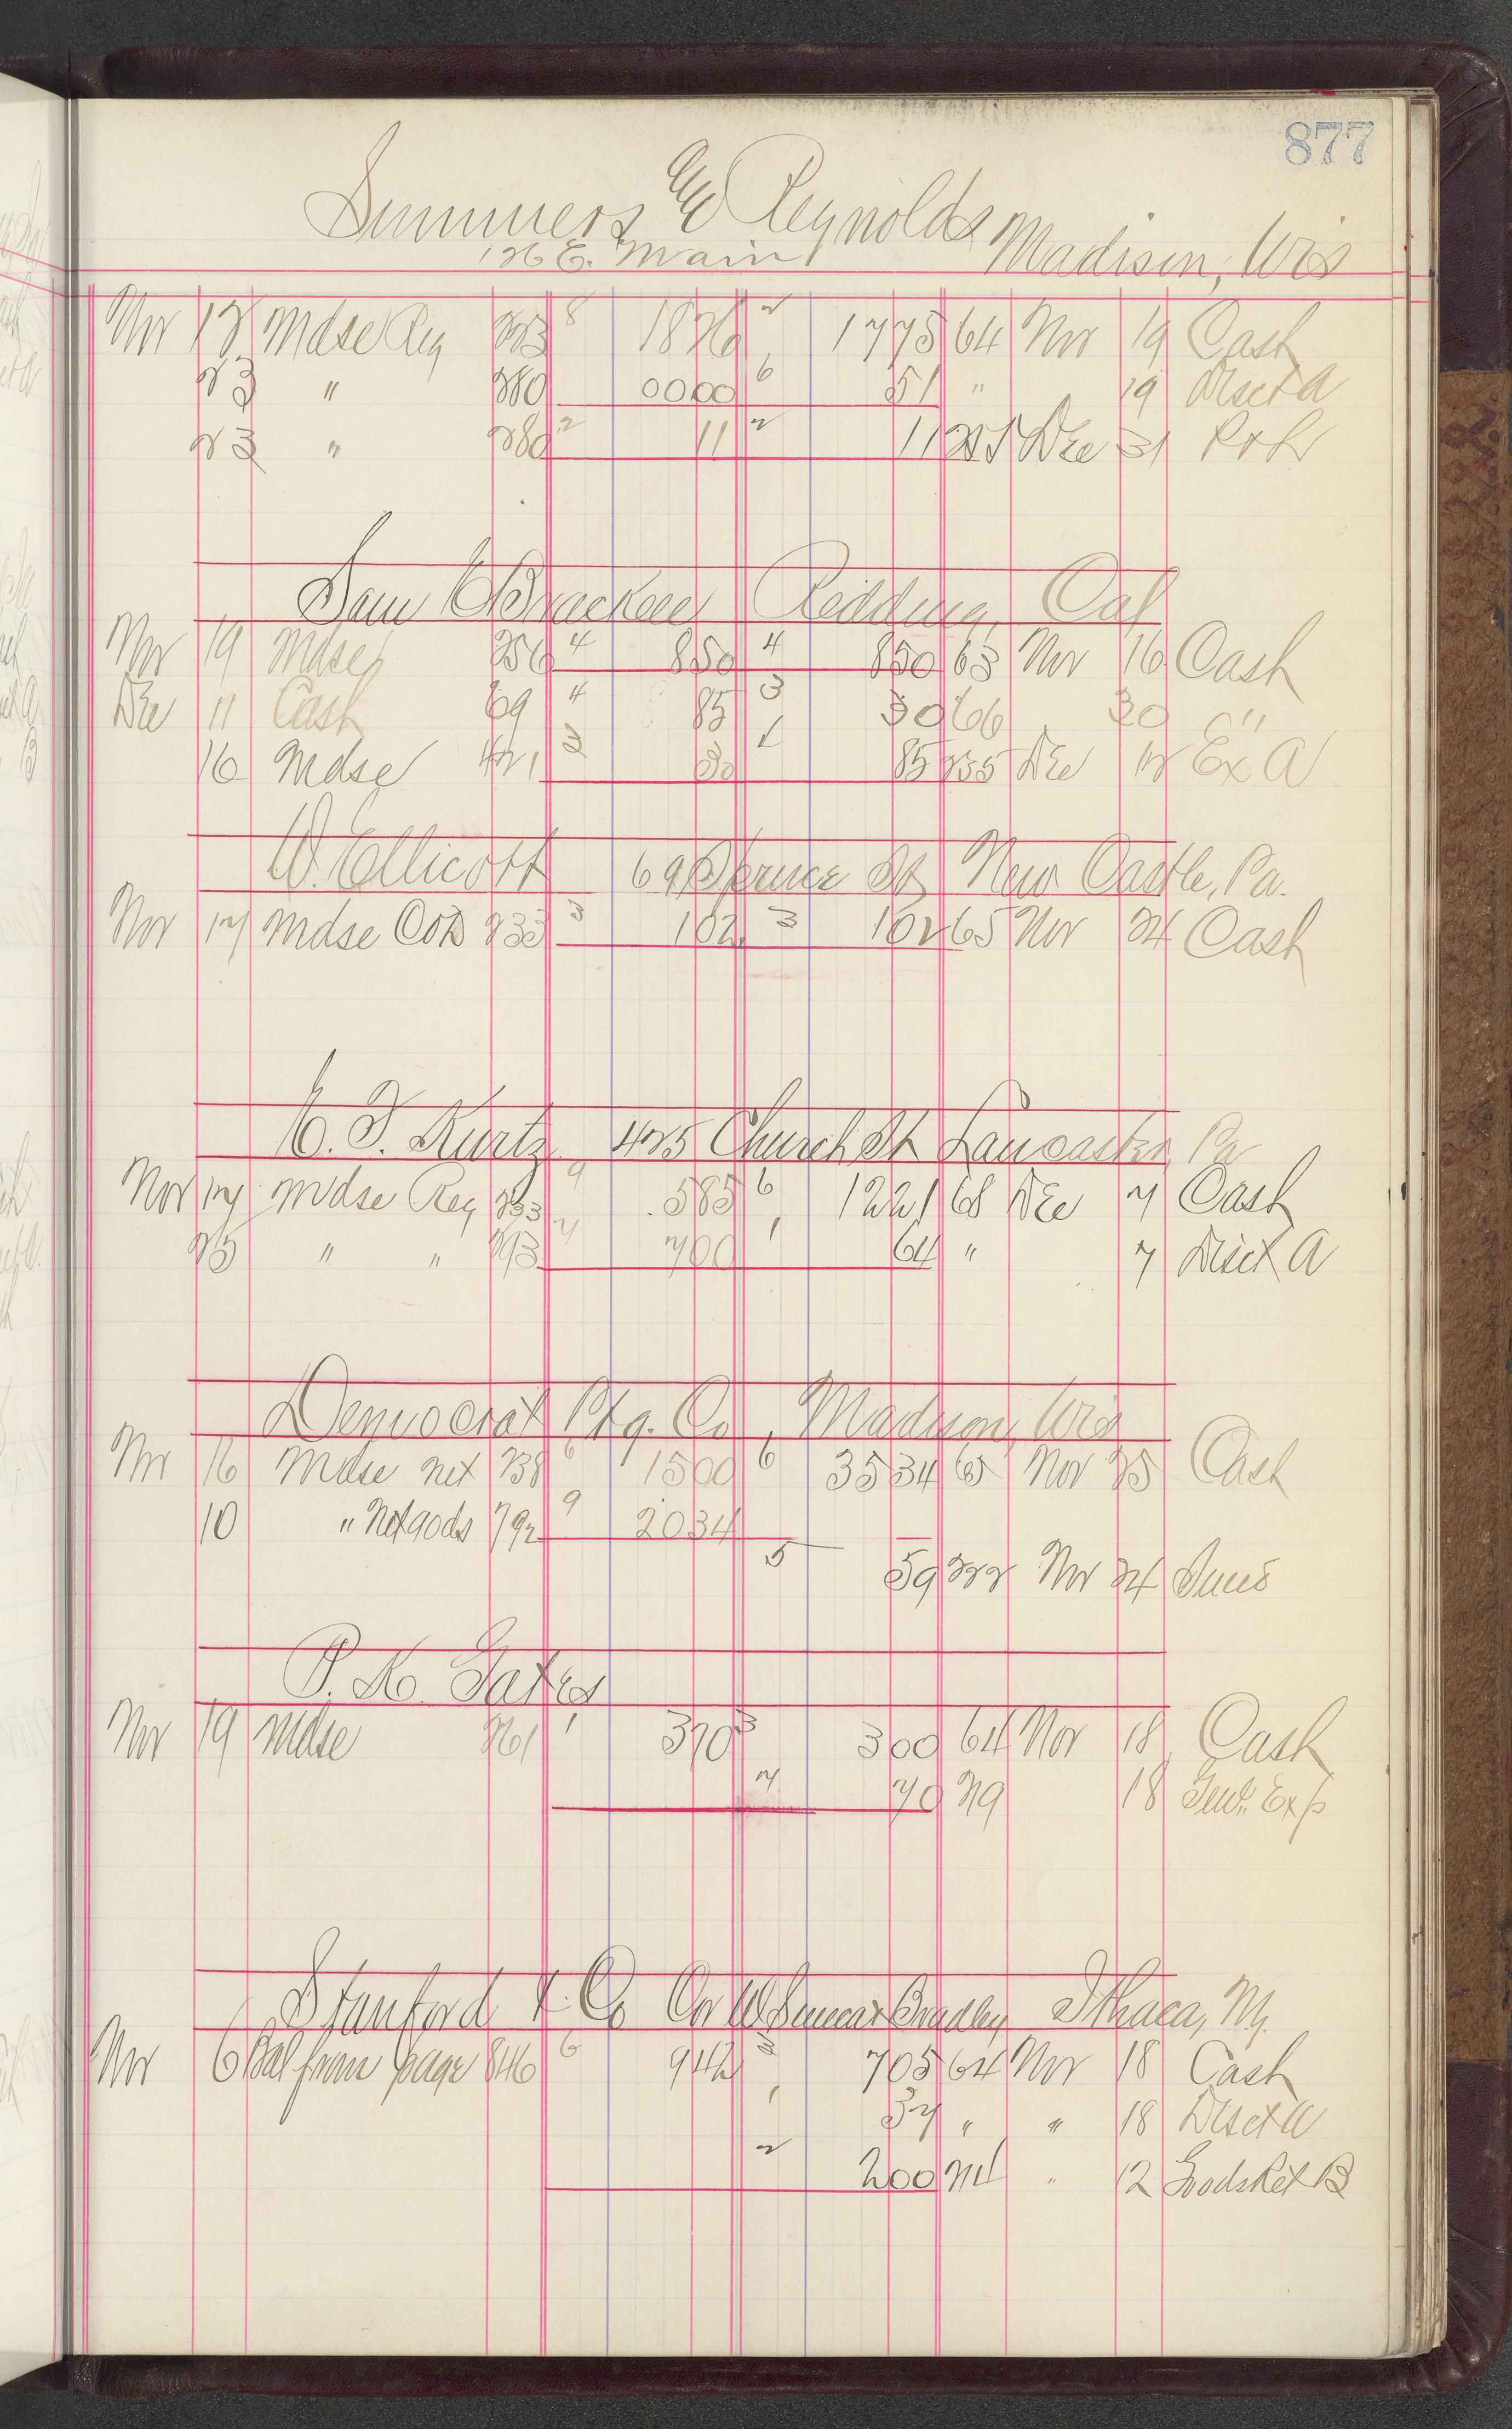 877
Summers & Reynolds Madison, Wis
126 E. Main
Nov 12 Mdse Reg 223 8 1826 2 1775 64 Nov 19 Cash
23 " 280 0000 6 51 " 19 Disct A
23 " 280 2 11 2 11 255 Dec 31 P & L
Sam E Bracken Redding, Cal
Nov 19 Mdse 256 4 850 4 850 63 Nov 16 Cash
Dec 11 Cash 69 4 85 3 30 66 30 "
16 Mdse 421 3 30 1 85 255 Dec 12 Ex A
W. Ellicott 69 Spruce St New Castle, Pa.
Nov 17 Mdse COD 233 3 102 3 102 65 Nov 24 Cash
E. F. Kurtz 425 Church St Lancaster Pa
Nov 17 Mdse Reg 233 9 585 6 1221 68 Dec 7 Cash
25 " " 293 7 700 1 64 " 7 Disct A
Democrat Ptg. Co, Madison, Wis
Nov 16 Mdse net 238 6 1500 6 3534 65 Nov 25 Cash
10 " Net gods 792 9 2034
5 59 222 Nov 24 Sunds
P. K. Gates
Nov 19 Mdse 261 1 370 3 300 64 Nov 18 Cash
7 70 29 18 Genl. Exp
Stanford & Co Cor W Bradley Ithaca, Ny.
Nov 6 Bal from page 846 6 942 3 705 64 Nov 18 Cash
1 37 " " 18 Disct A
2 200 214 " 12 Goods Ret B